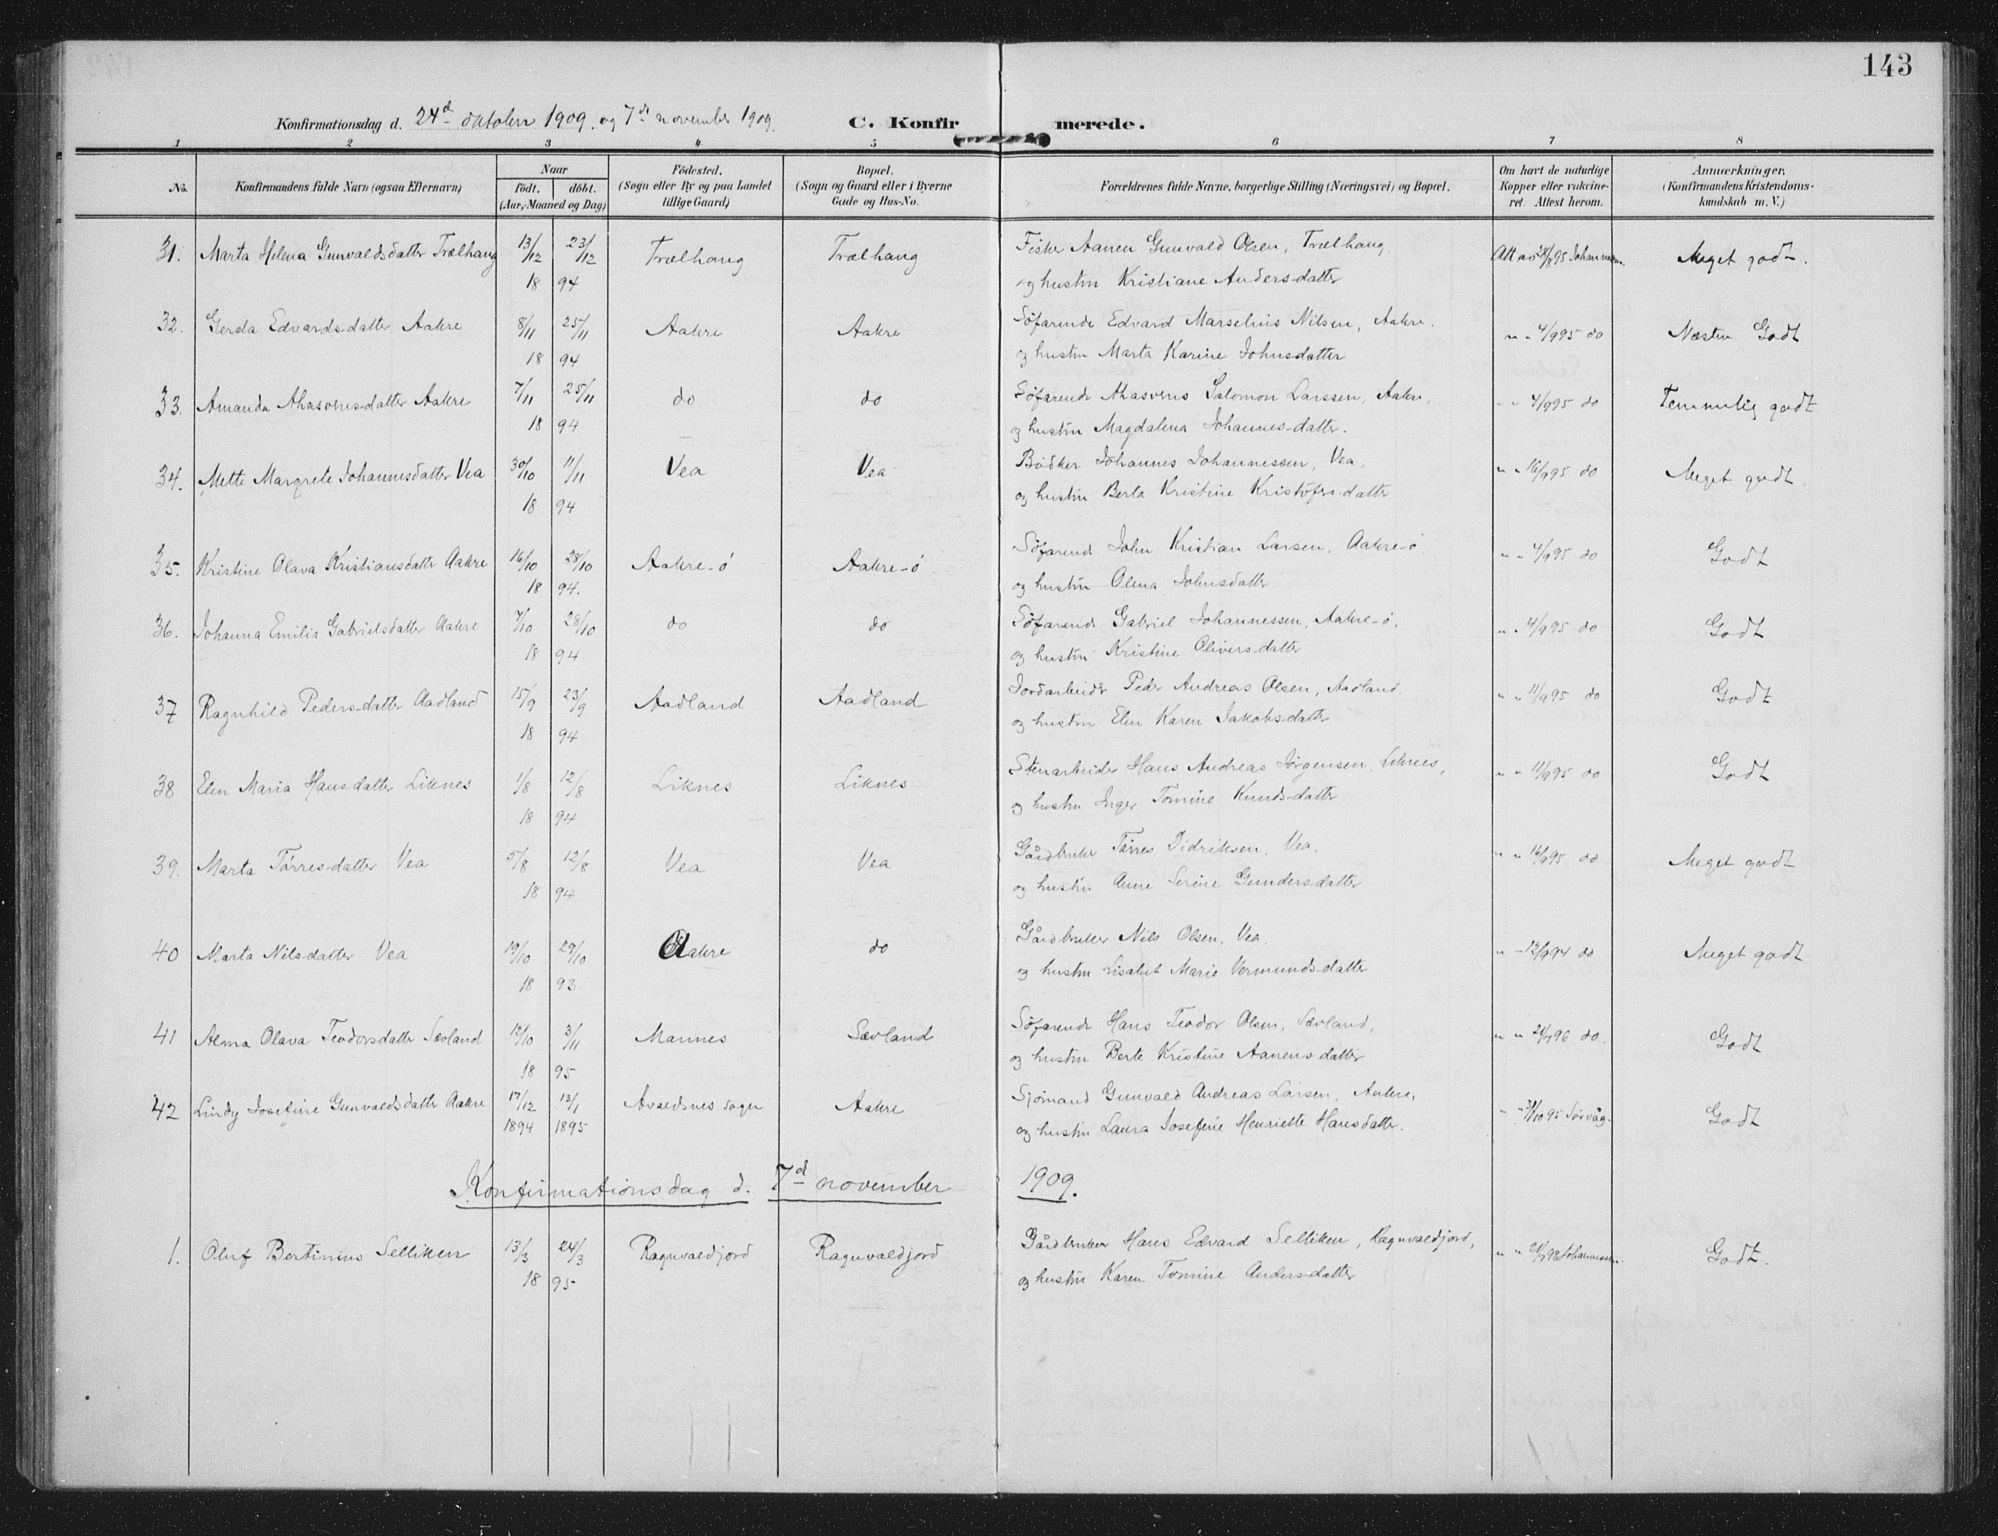 143
Konfirmationsdag d. 24d oktober 1909. og 7de november 1909. C. Konfirmerede.
1 2 3 4 5 6 7 8
No. Konfirmandens fulde Navn (ogsaa Efternavn) Naar födt. döbt. (Aar, Maaned og Dag) Födested. (Sogn eller By og paa Landet tillige Gaard) Bopæl. (Sogn og Gaard eller i Byerne Gade og Hus-No. Forældrenes fulde Navne, borgerlige Stilling (Næringsvei) og Bopæl. Om havt de naturlige Kopper eller vaccineret. Attest herom. Anmærkninger. (Konfirmandens Kristendomskundskab m. V.)
31. Marta Helena Gunvaldsdatter Trælhaug 13/12 23/12 Trælhaug Trælhaug Fisker Aanen Gunvald Olsen, Trælhaug Meget godt.
18 94 og hustru Kristiane Andersdatter
32. Gerda Edvardsdatter Aakre 8/11 25/11 Aakre Aakre Söfarende Edvard Marselius Nilsen, Aakre. " " 4/9 95 do Næsten Godt
18 94 og hustru Marta Karine Johnsdatter
33. Amanda Ahasverusdatter Aakre 7/11 25/11 do do Söfarende Ahasverus Salomon Larssen, Aakre. " " 4/9 95 do Temmelig godt
18 94 og hustru Magdalena Johannesdatter.
34. Mette Margrete Johannesdatter Vea 30/10 11/11 Vea Vea Bödker Johannes Johannessen, Vea, " " 16/9 95 do Meget godt
18 94 og hustru Berta Kristine Kristofersdatter
35. Kristine Olava Kristiansdatter Aakre 16/10 28/10 Aakre-ö Aakre-ö Söfarende John Kristian Larsen, Aakre-ö " " 4/9 95 do Godt
18 94. og hustru Olena Johnsdatter
36. Johanna Emilia Gabrielsdatter Aakre 7/10 28/10 do do Söfarende Gabriel Johannessen, Aakre-ö, " " 4/9 95 do Godt
18 94 og hustru Kristine Oliversdatter
37 Ragnhild Pedersdatter Aadland 15/9 23/9 Aadland Aadland Jordarbeider Peder Andreas Olsen, Aadland. " " 11/9 95 do Godt
18 94 og hustru Elen Karen Jakobsdatter
38 Elen Maria Hansdatter Liknes 1/8 12/8 Liknes Liknes Stenarbeider Hans Andreas Jörgensen, Liknes, " " 11/9 95 do Godt
18 94 og hustru Inger Tomine Knudsdatter
39. Marta Törresdatter Vea 5/8 12/8 Vea Vea Gårdbruker Törres Didriksen, Vea. " " 16/9 95 do Meget godt
18 94 og hustru Anne Serine Gundersdatter
40 Marta Nilsdatter Vea 19/10 29/10 Aakre do Gårdbruker Nils Olsen, Vea. " " 12/9 94 do Meget godt
18 93 og hustru Lisabet Marie Vermundsdatter
41 Alma Olava Teodorsdatter Sævland 12/10 3/11 Mannes Sævland Söfarende Hans Teodor Olsen, Sævland, " " 96 do. Godt
18 95 og hustru Berte Kristine Aanensdatter
42 Lindy Josefine Gunvaldsdatter Aakre 17/12 13/1 Avaldsnes sogn Aakre Sjömand Gunvald Andreas Larsen, Aakre, " " 31/10 95 Sörvåg. Godt
1894 1895 og hustru Laura Josefine Henriette Hansdatter.
Konfirmationsdag d. 7d november 1909.
1. Oluf Bertinius Selliken 13/3 24/3 Ragnvaldjord Ragnvaldjord Gårdbruker Hans Edvard Selliken, Ragnvaldjord, " " 98 Johannessen. Godt.
18 95 og hustru Karen Tomine Andersdatter